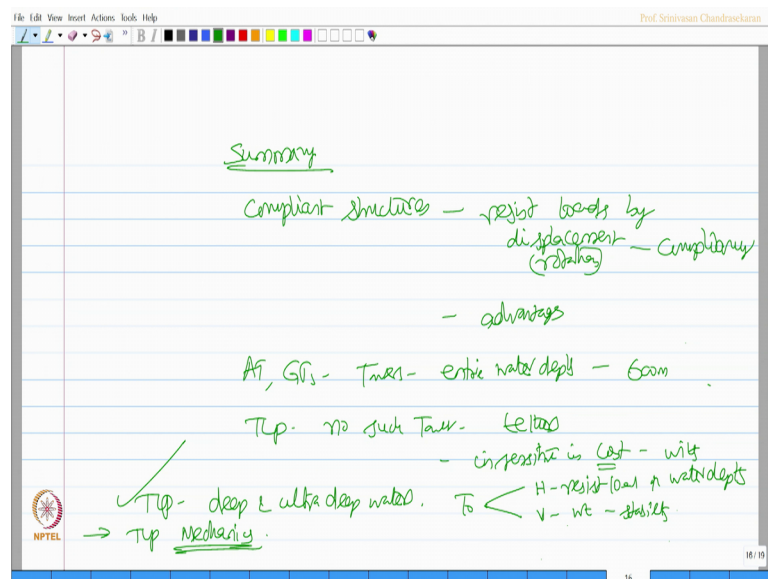 File Edit View Insert Actions Tools Help
Prof. Srinivasan Chandrasekaran
B I
Summary
Compliant structures – resist loads by
displacement – compliancy
(rotation)
– advantage
AT, GTs – Tower – entire water depth – 600m
TLP. no such Tower. tethers
– insensitive in cost – with
water depth
TLP – deep & ultra deep waters. To
H – resist load
V – wt – stability
→ TLP Mechanics.
NPTEL
16/19
16